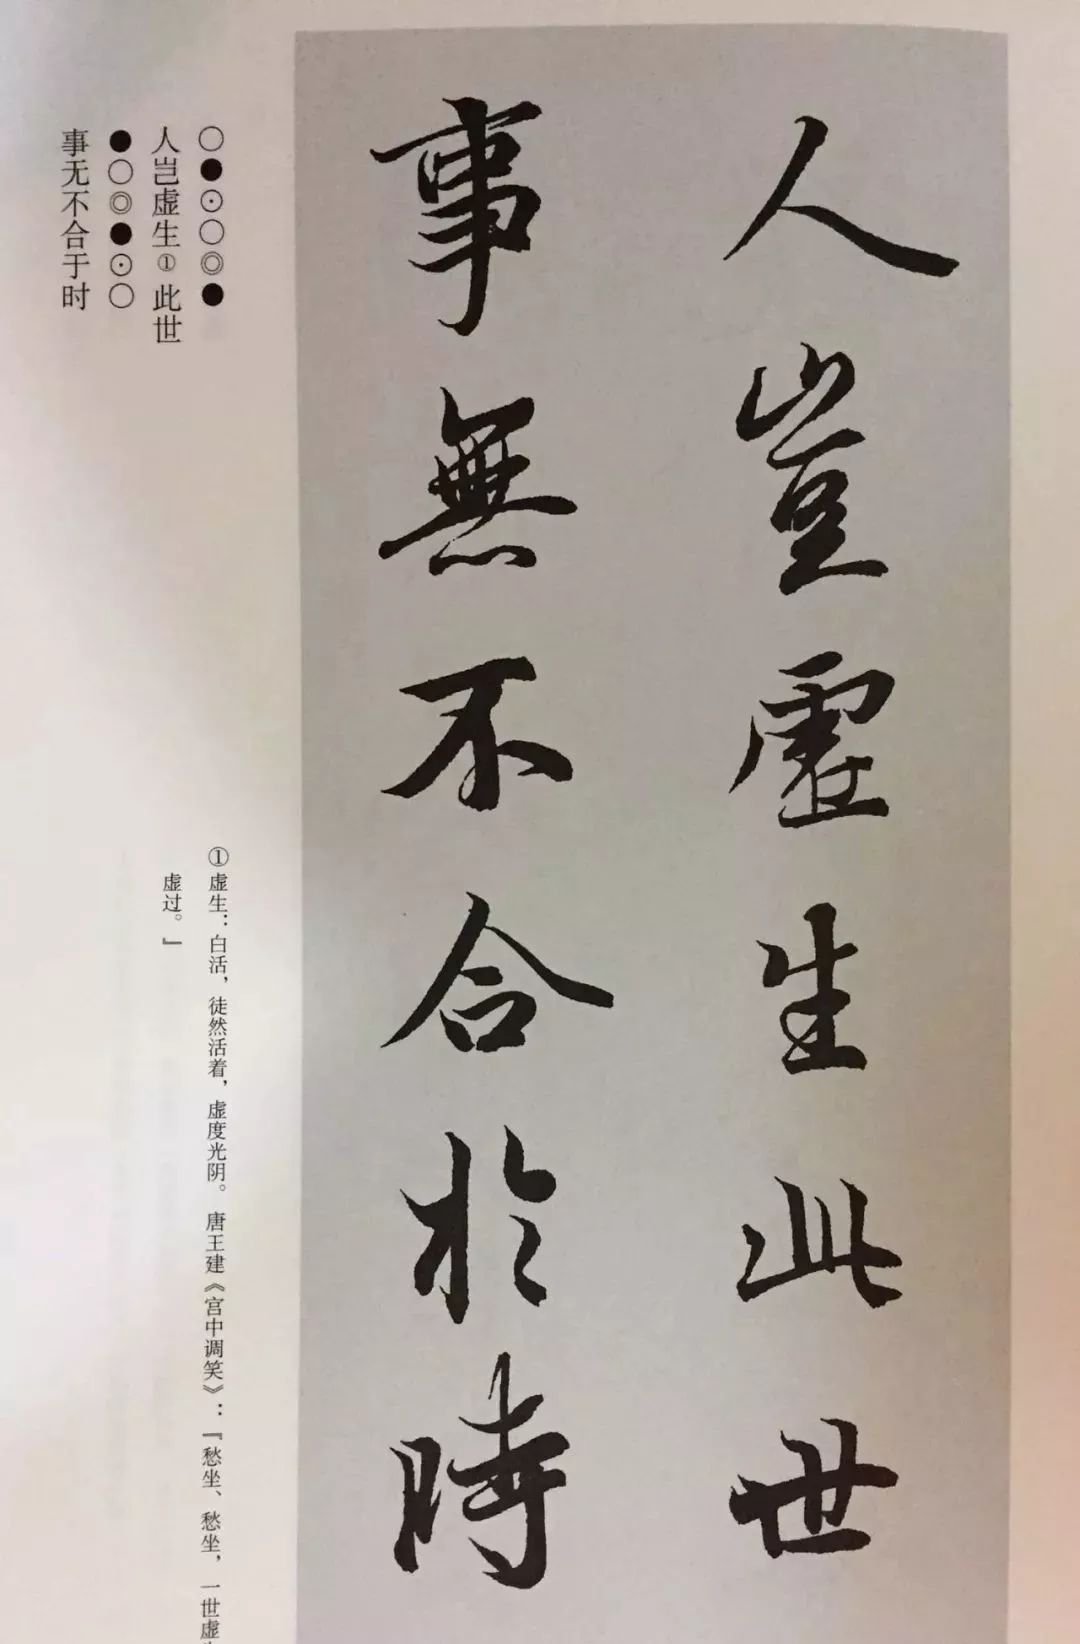 人豈虛生此世
事無不合於時
○●⊙○◎●
人岂虚生①此世
●○◎●⊙○
事无不合于时
①虚生：白活，徒然活着，虚度光阴。唐王建《宫中调笑》：『愁坐、愁坐，一世虚
虚过。』